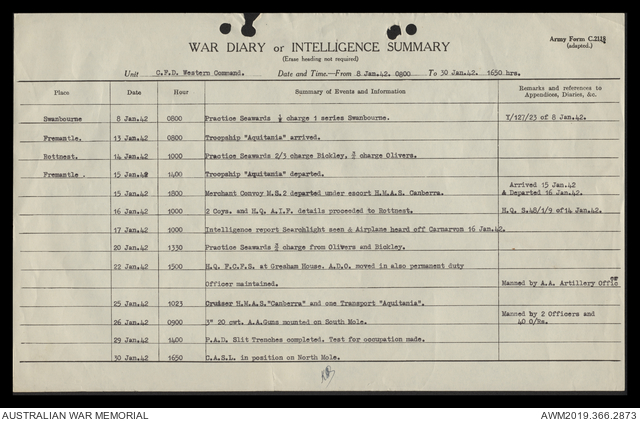 Army Form C.2118
(adapted.)
WAR DIARY or INTELLIGENCE SUMMARY
(Erase heading not required)
Unit C.F.D. Western Command. Date and Time.—From 8 Jan.42. 0800 To 30 Jan.42. 1650 hrs.
Place Date Hour Summary of Events and Information Remarks and references to Appendices, Diaries, &c.
Swanbourne 8 Jan.42 0800 Practice Seawards charge 1 series Swanbourne. Y/127/23 of 8 Jan.42.
Fremantle. 13 Jan.42 0800 Troopship "Aquitania" arrived.
Rottnest. 14 Jan.42 1000 Practice Seawards 2/3 charge Bickley, charge Olivers.
Fremantle . 15 Jan.42 1400 Troopship "Aquitania" departed.
15 Jan.42 1800 Merchant Convoy M.S.2 departed under escort H.M.A.S. Canberra. Arrived 15 Jan.42
& Departed 16 Jan.42.
16 Jan.42 1000 2 Coys. and H.Q. A.I.F. details proceeded to Rottnest. H.Q. S.48/1/9 of 14 Jan.42.
17 Jan.42 1000 Intelligence report Searchlight seen & Airplane heard off Carnarvon 16 Jan.42.
20 Jan.42 1330 Practice Seawards charge from Olivers and Bickley.
22 Jan.42 1500 H.Q. F.C.F.S. at Gresham House. A.D.O. moved in also permanent duty
Officer maintained. Manned by A.A. Artillery Officer
25 Jan.42 1023 Cruiser H.M.A.S."Canberra" and one Transport "Aquitania".
26 Jan.42 0900 3" 20 cwt. A.A.Guns mounted on South Mole. Manned by 2 Officers and
40 O/Rs.
29 Jan.42 1400 P.A.D. Slit Trenches completed. Test for occupation made.
30 Jan.42 1650 C.A.S.L. in position on North Mole.
AUSTRALIAN WAR MEMORIAL AWM2019.366.2873